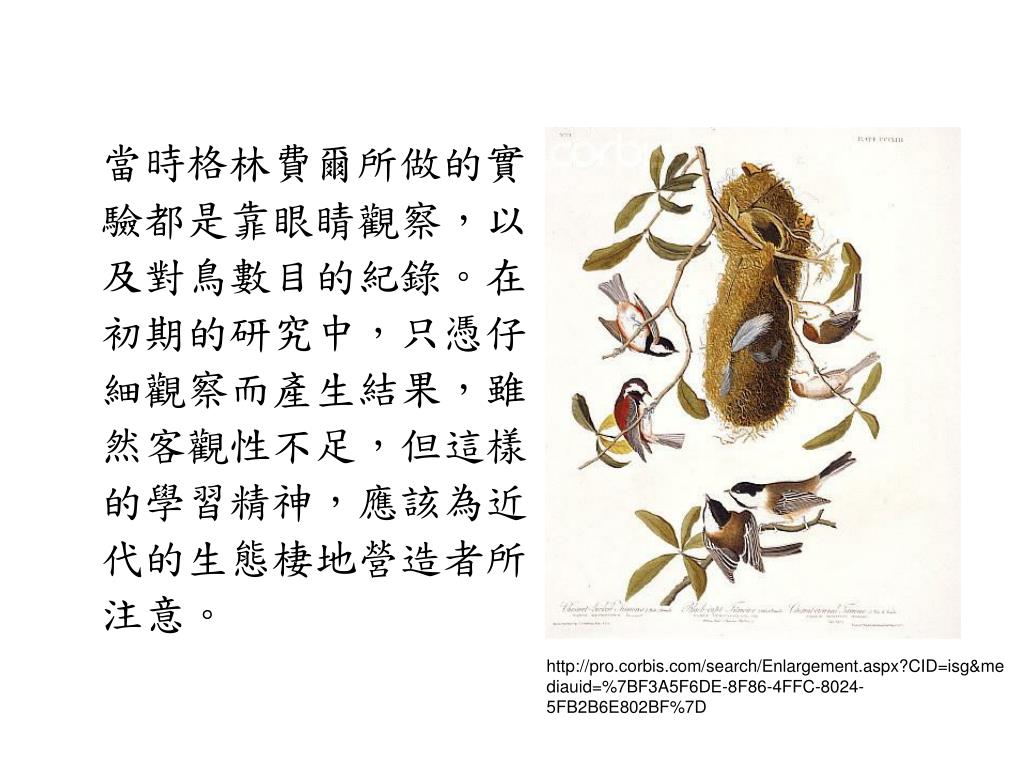 當時格林費爾所做的實
驗都是靠眼睛觀察，以
及對鳥數目的紀錄。在
初期的研究中，只憑仔
細觀察而產生結果，雖
然客觀性不足，但這樣
的學習精神，應該為近
代的生態棲地營造者所
注意。
corbis
Chesnut-backed Titmouse Black-capt Titmouse Chesnut-crowned Titmouse
http://pro.corbis.com/search/Enlargement.aspx?CID=isg&me
diauid=%7BF3A5F6DE-8F86-4FFC-8024-
5FB2B6E802BF%7D